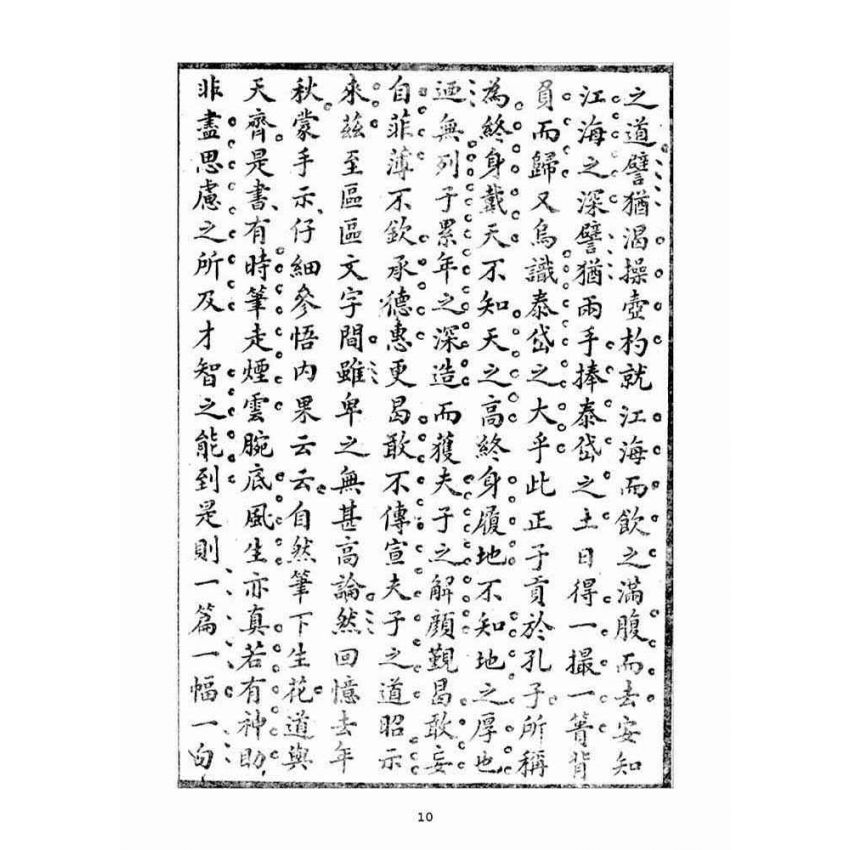 之道譬猶渴操壺杓就江海而飲之滿腹而去安知
江海之深譬猶兩手捧泰岱之土日得一撮一簣背
負而歸又烏識泰岱之大乎此正子貢於孔子所稱
為終身戴天不知天之高終身履地不知地之厚也
迺無列子累年之深造而獲夫子之解顏覲曷敢妄
自菲薄不欽承德惠更曷敢不傳宣夫子之道昭示
來茲至區區文字間雖卑之無甚高論然回憶去年
秋蒙手示仔細參悟內果云云自然筆下生花道與
天齊是書有時筆走煙雲腕底風生亦真若有神助
非盡思慮之所及才智之能到是則一篇一幅一句
10